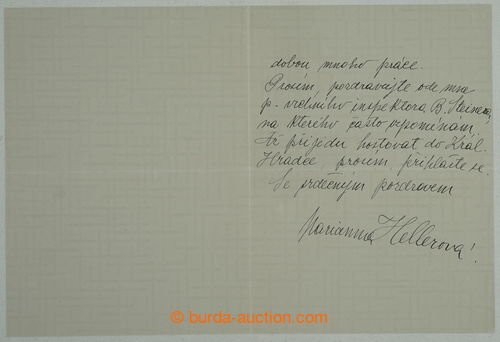 dobou mnoho práce.
Prosím, pozdravujte ode mne
p. vrchního inspektora B. Steinera,
na kterého často vzpomínám.
Až přijedu hostovat do Král.
Hradce, prosím přihlašte se.
Se srdečným pozdravem
Marianna Hellerová!
© burda-auction.com